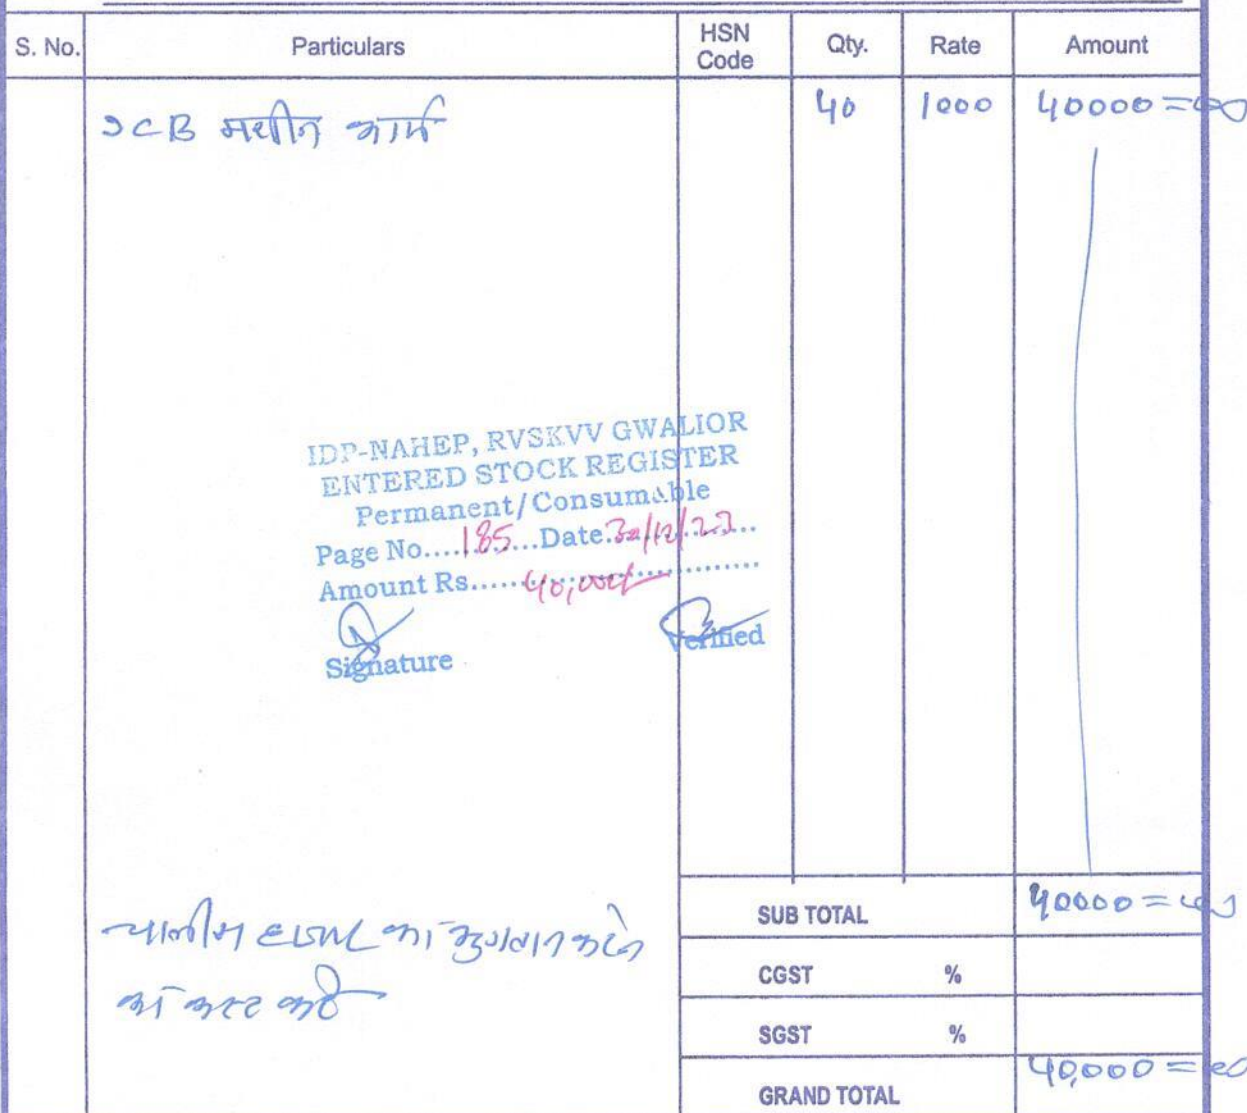 S. No. Particulars HSN Code Qty. Rate Amount
JCB मशीन कार्य 40 1000 40000=00
IDP-NAHEP, RVSKVV GWALIOR
ENTERED STOCK REGISTER
Permanent/Consumable
Page No....185...Date.30/12/23...
Amount Rs.....40,000/-
Signature Verified
SUB TOTAL 40000=00
चालीस हजार का भुगतान करने
का कष्ट करें
CGST %
SGST %
GRAND TOTAL 40,000=00